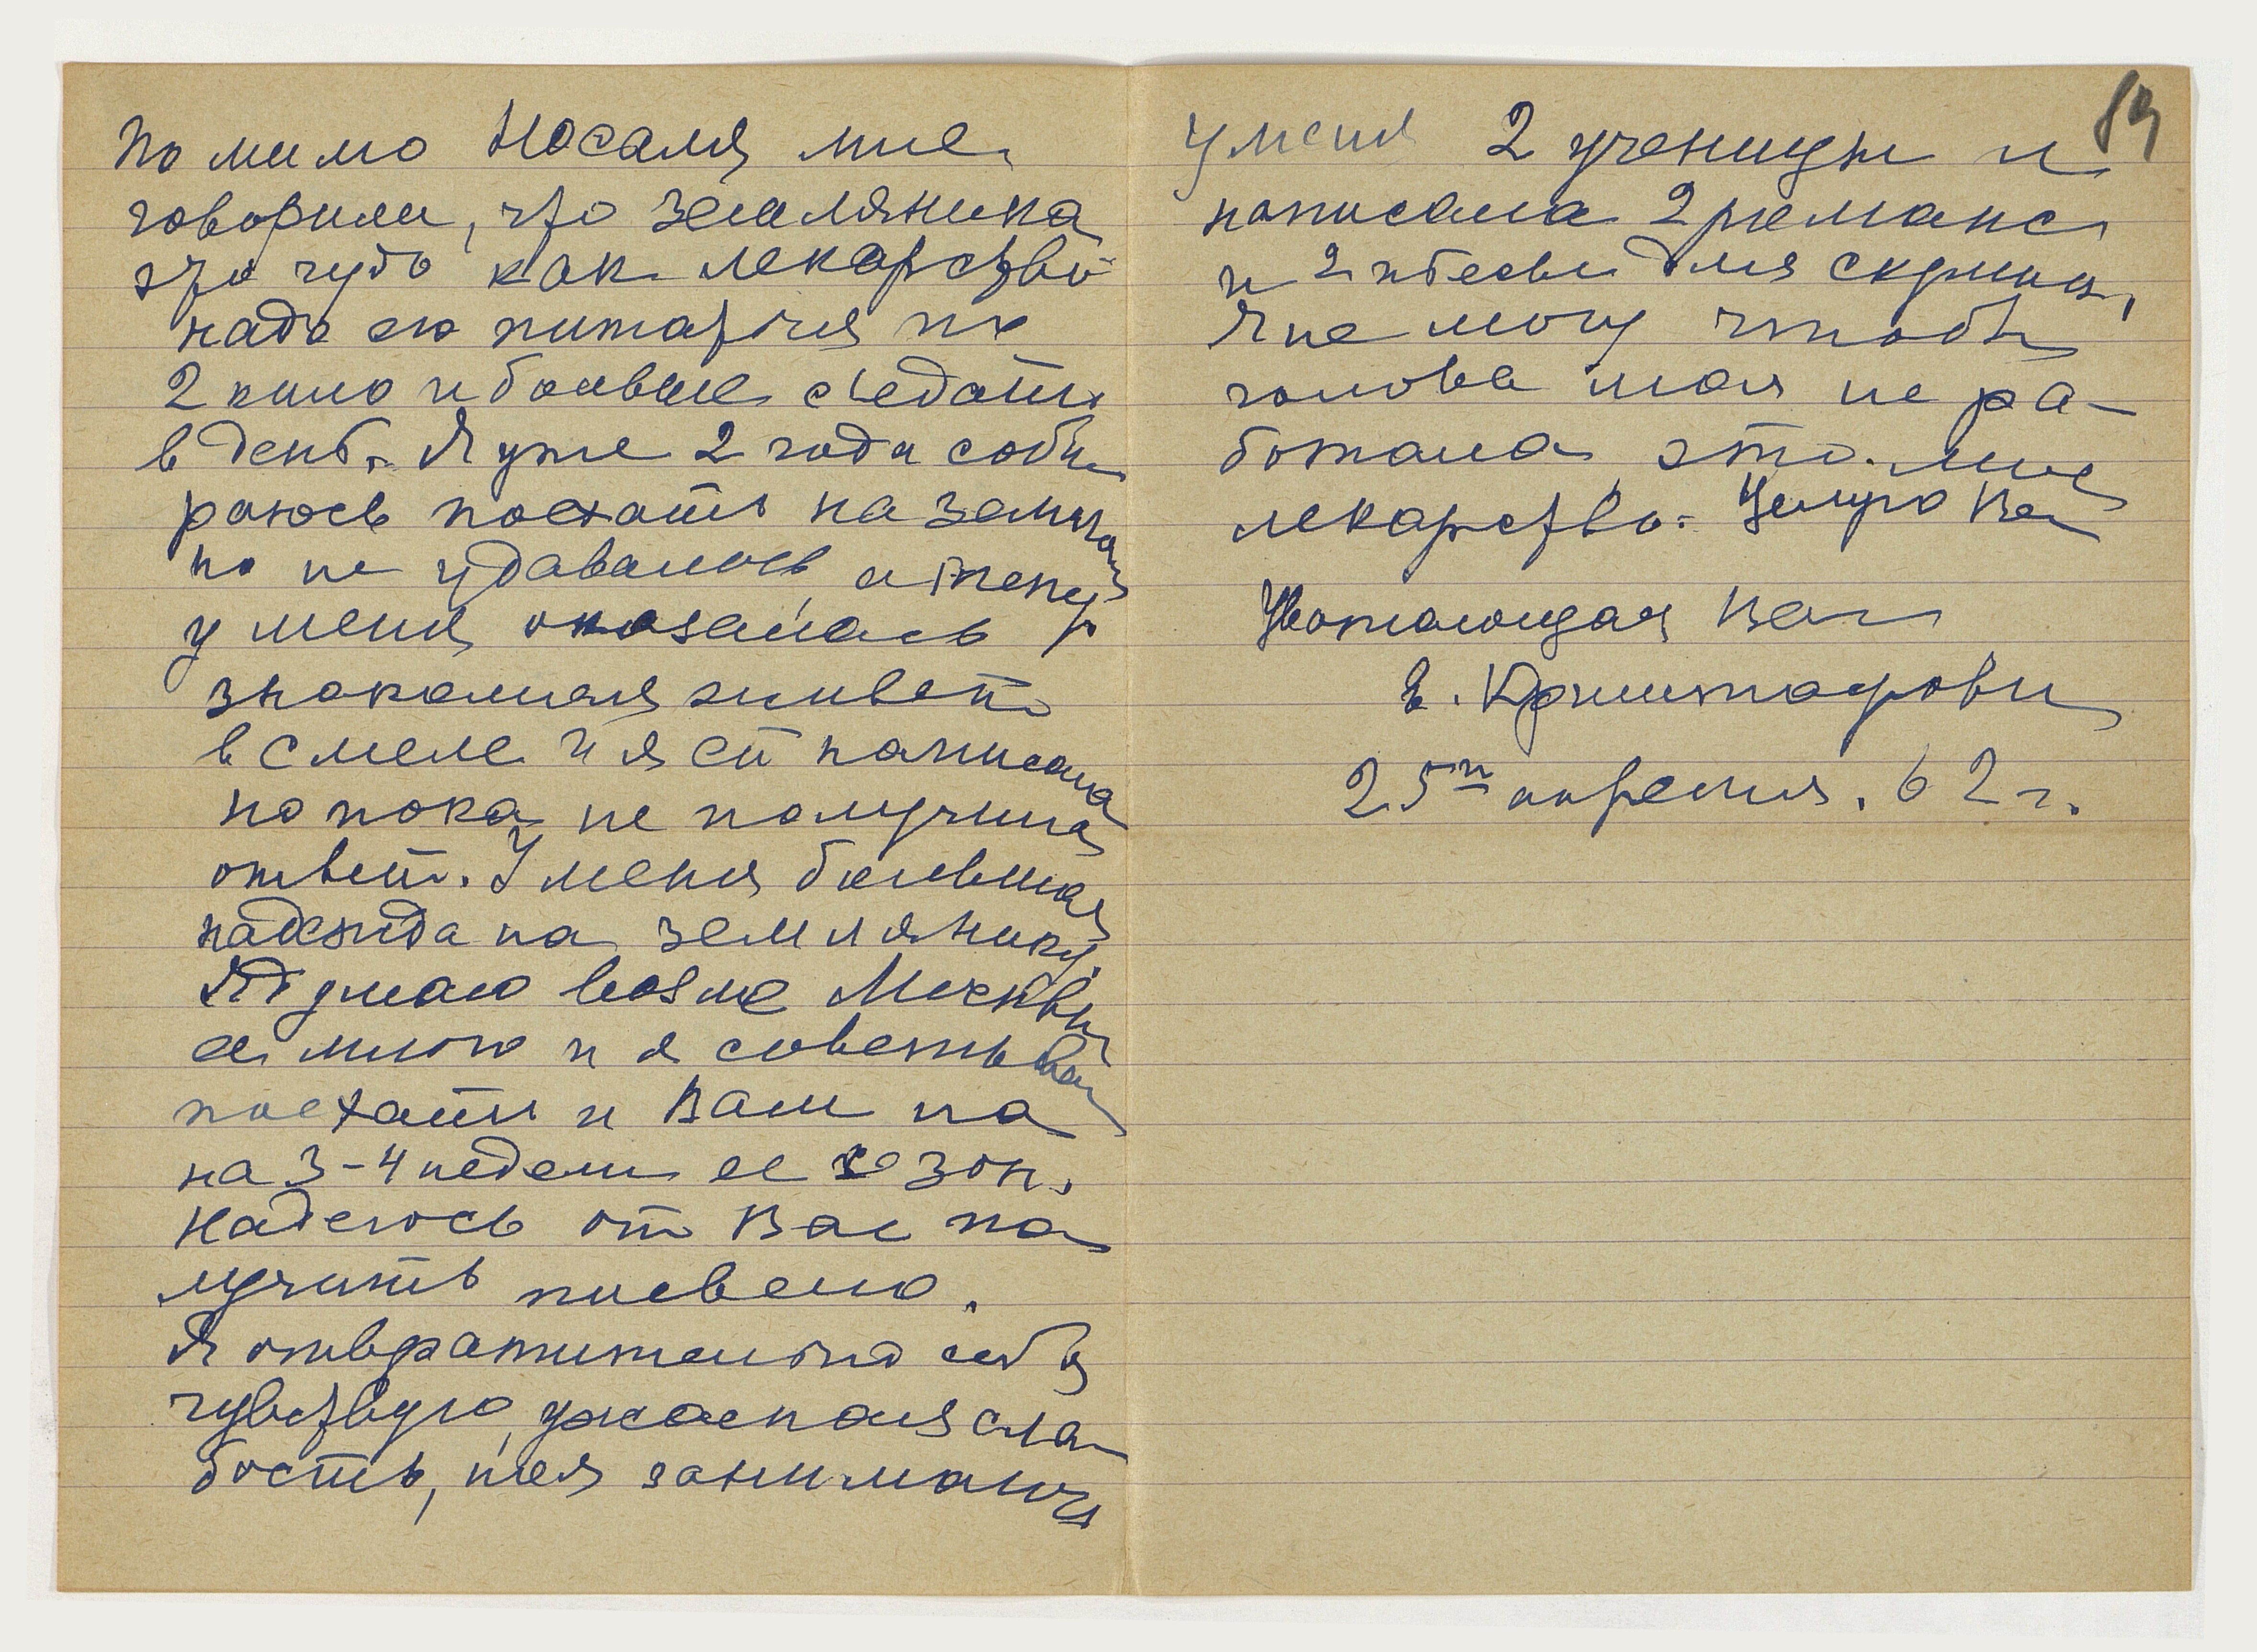 Помимо Носаля мне
говорили, что земляника
это чудо как лекарство
надо ею питаться по
2 кило и больше съедать
в день. Я уже 2 года соби
раюсь поехать на
но не удавалось, а тепер
у меня оказалась
знакомая живет
в Смеле и я ей написала
но пока не получила
ответ. У меня большая
надежда на землянику.
Я думаю возле Москвы
ее много и я советываю
поехать и Вам на
на 3-4 недели ее сезон.
Надеюсь от Вас по
лучить письмо.
Я отвратительно себя
чувствую, ужасная сла-
бость, но я занимаюсь
89
У меня 2 ученицы и
написала 2 романса
и 2 пьесы для скрипки,
Я не могу чтобы
голова моя не ра-
ботала, это мое
лекарство. Целую Вас
Уважающая Вас
Е. Криштафович
25го апреля. 62 г.